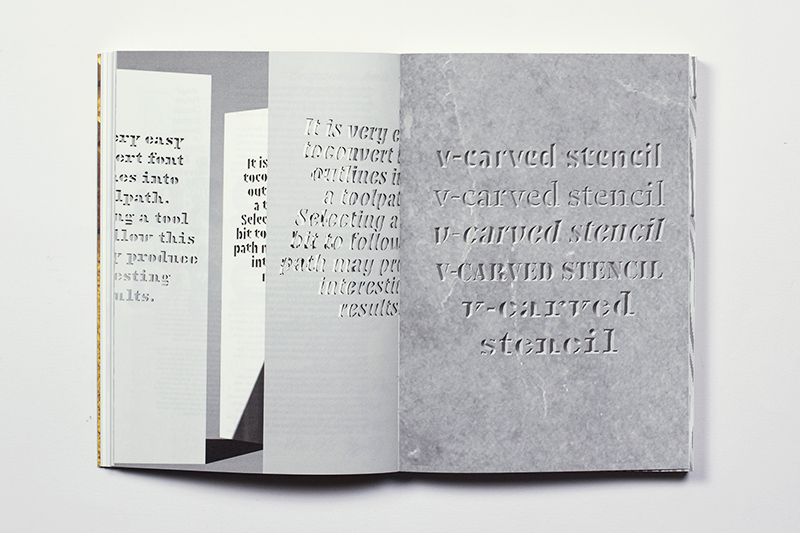 ery easy
ert font
es into
lpath.
ng a tool
llow this
y produce
esting
ults.
It is
toco
out
a t
Selec
bit to
path
int
It is very e
toconvert
outlines i
a toolpat
Selecting a
bit to follow
path may pro
interesti
results.
v-carved stencil
v-carved stencil
v-carved stencil
V-CARVED STENCIL
v-carved
stencil